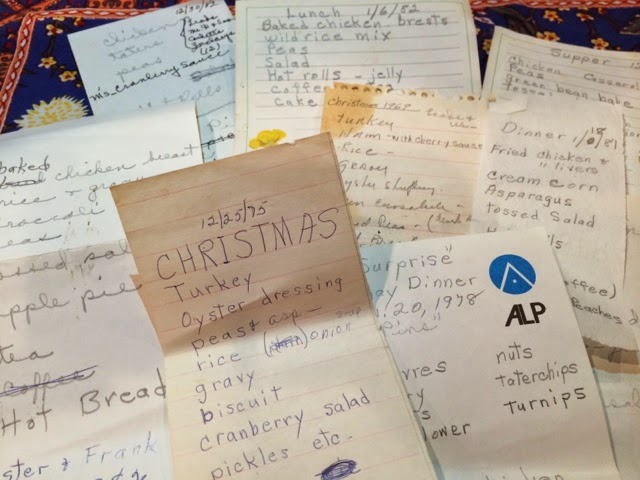 12/30/82
chicken
taters
peas
cranberry sauce
Lunch 1/6/82
Baked chicken brests
wild rice mix
Peas
Salad
Hot rolls - jelly
coffee
cake
Supper
chicken Casserole
peas
green bean bake
Christmas 1969
turkey
Ham - with cherry sauce
Rice -
Gravy
oyster stuffing
Dinner 1/18/81
Fried chicken &
" livers
cream corn
Asparagus
tossed Salad
coffee)
Peaches
baked
chicken breast
rice & gravy
broccoli
peas
tossed salad
apple pie
tea
coffee
Hot Bread
& Frank
12/25/75
CHRISTMAS
Turkey
Oyster dressing
peas & asp -
rice onion soup
gravy
biscuit
cranberry salad
pickles etc.
Surprise"
Dinner
20, 1978
Pins"
ALP
nuts
taterchips
turnips